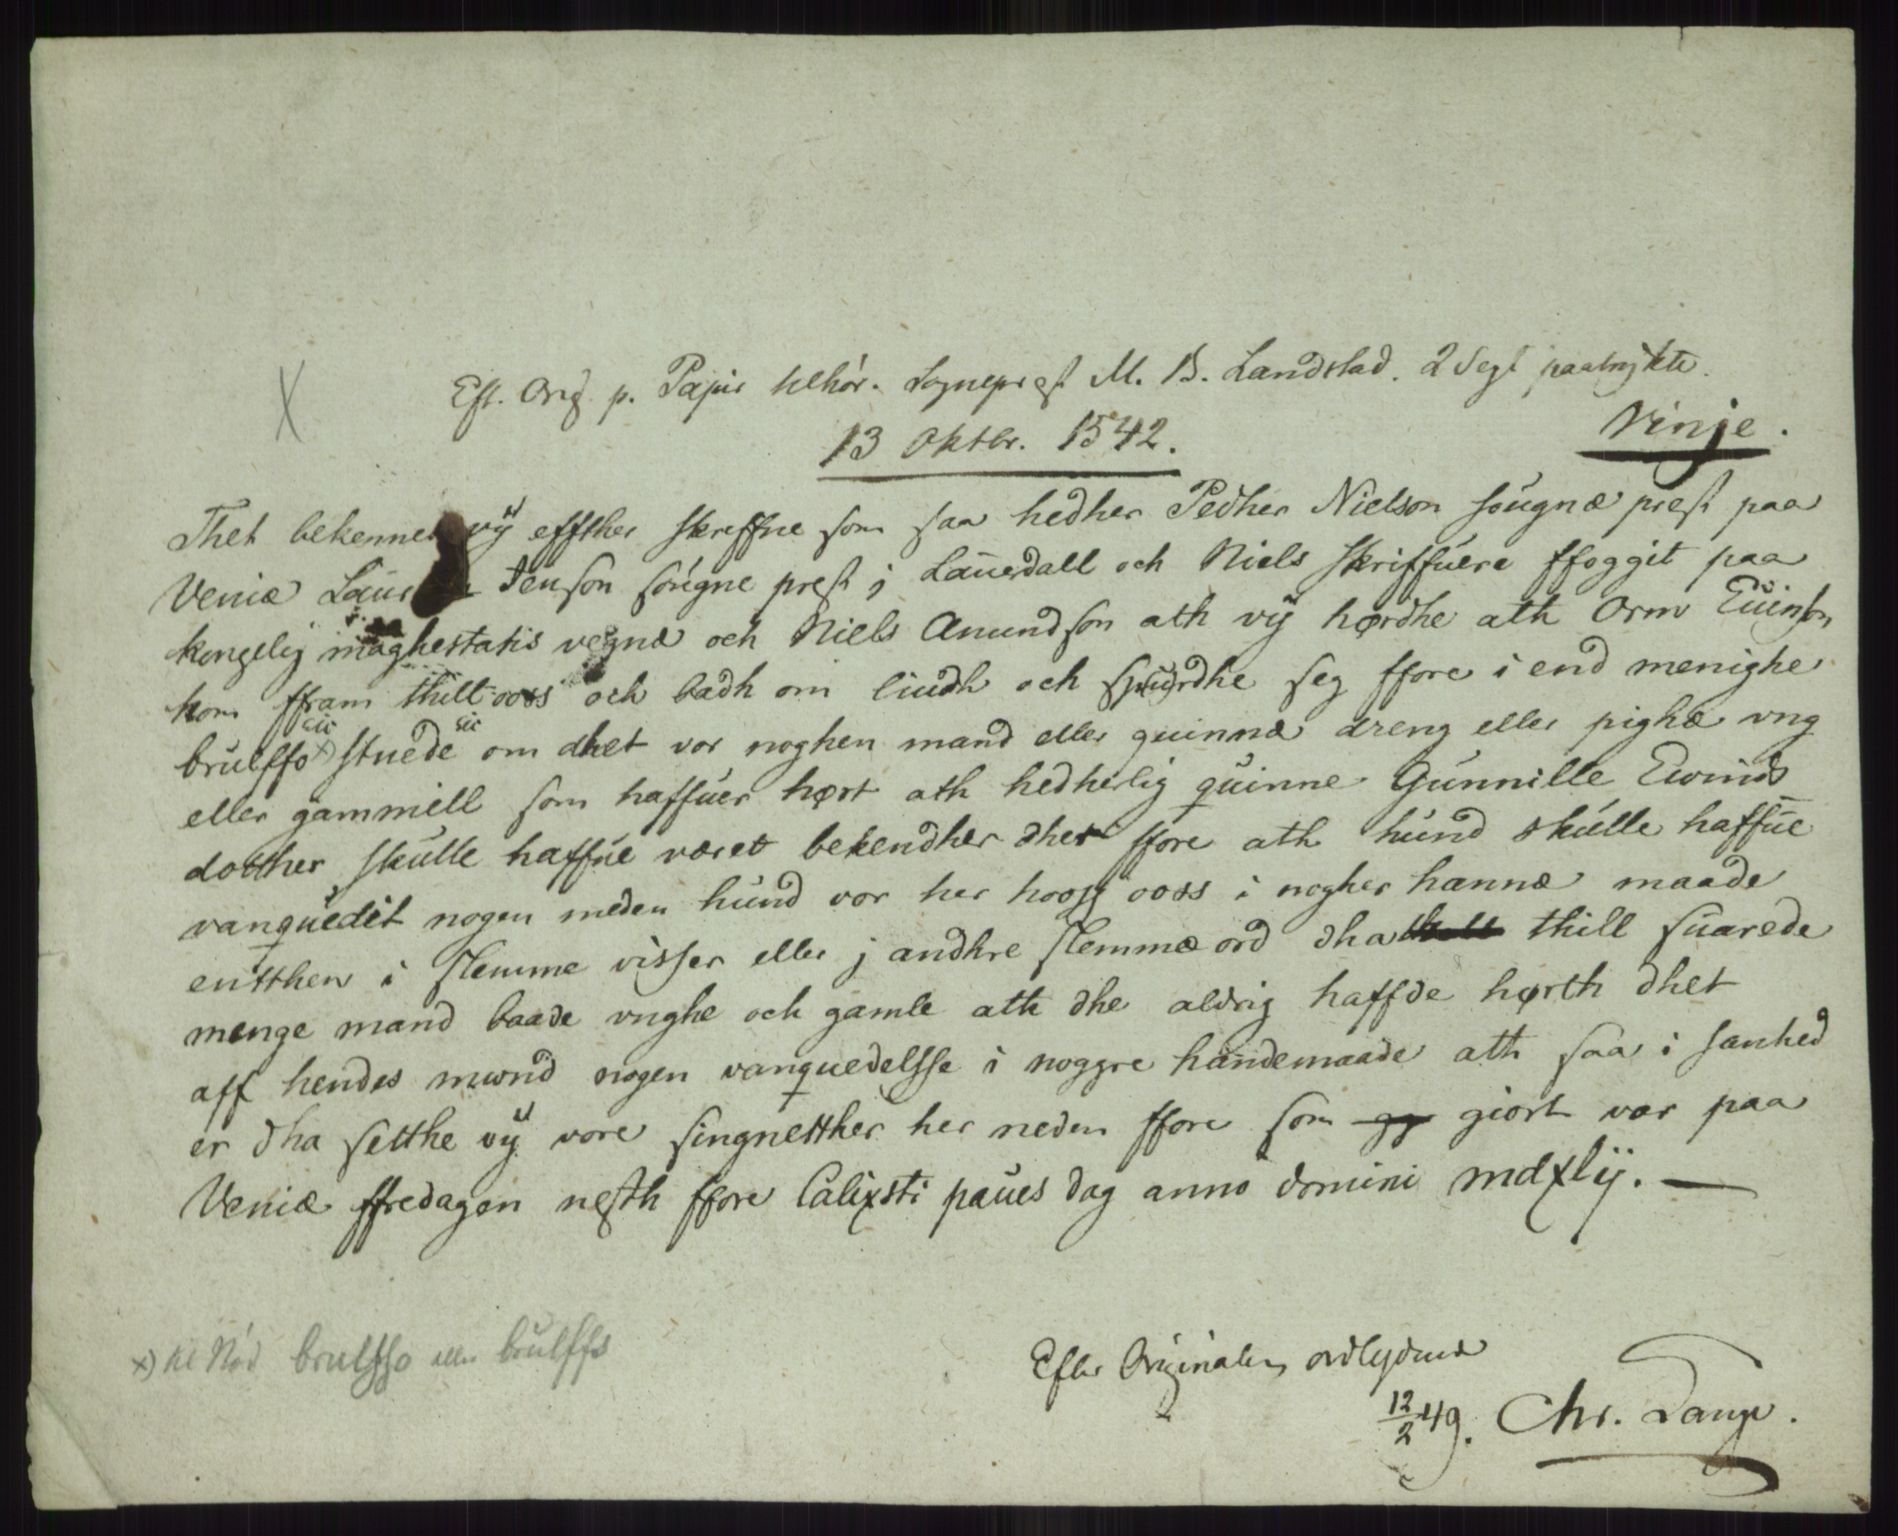 X
Eft. Orig. p. Papir tilhør. Sognepræst M. B. Landstad. 2 Segl paatrykte.
13 Oktbr. 1542.
Vinje.
Thet bekenner vÿ effther skreffne som saa hedher Pedher Nielson sougnæ prest paa
Veniæ Laur Jenson sougne prest j Lauerdall och Niels Skriffuere ffoggit paa
kongelig maghestatis vegnæ och Niels Amundson ath vÿ hørdhe ath Orm Euinson
kom ffram thill ooss och badh om liudh och spurdhe seg ffore i end menighe
sic sic
brulffso x) stuede om dhet vor noghen mand eller quinnæ dreng eller pighæ vng
eller gammell som haffuer hørt ath hedherlig quinne Gunnille Ewinds
dotther skulle haffue været bekendher dhet ffore ath hund skulle haffue
vanquedit nogen meden hund vor her hooss ooss i nogher hannæ maade
entthen i slemme visser eller j andhre slemmæ ord dha thill suarede
menge mand baade vnghe och gamle ath dhe aldrig haffde hørth dhet
aff hendes mwnd nogen vanquedelsse i noggre handemaade ath saa i sanhed
er dha setthe vÿ vore singnetther her neden ffore som giort var paa
Veniæ ffredagen nesth ffore Calixsti paues dag anno domini mdxlij. —
x) brulffso eller brulffs
Efter Originalen ordlydende
12/2 49. Chr. Lange.